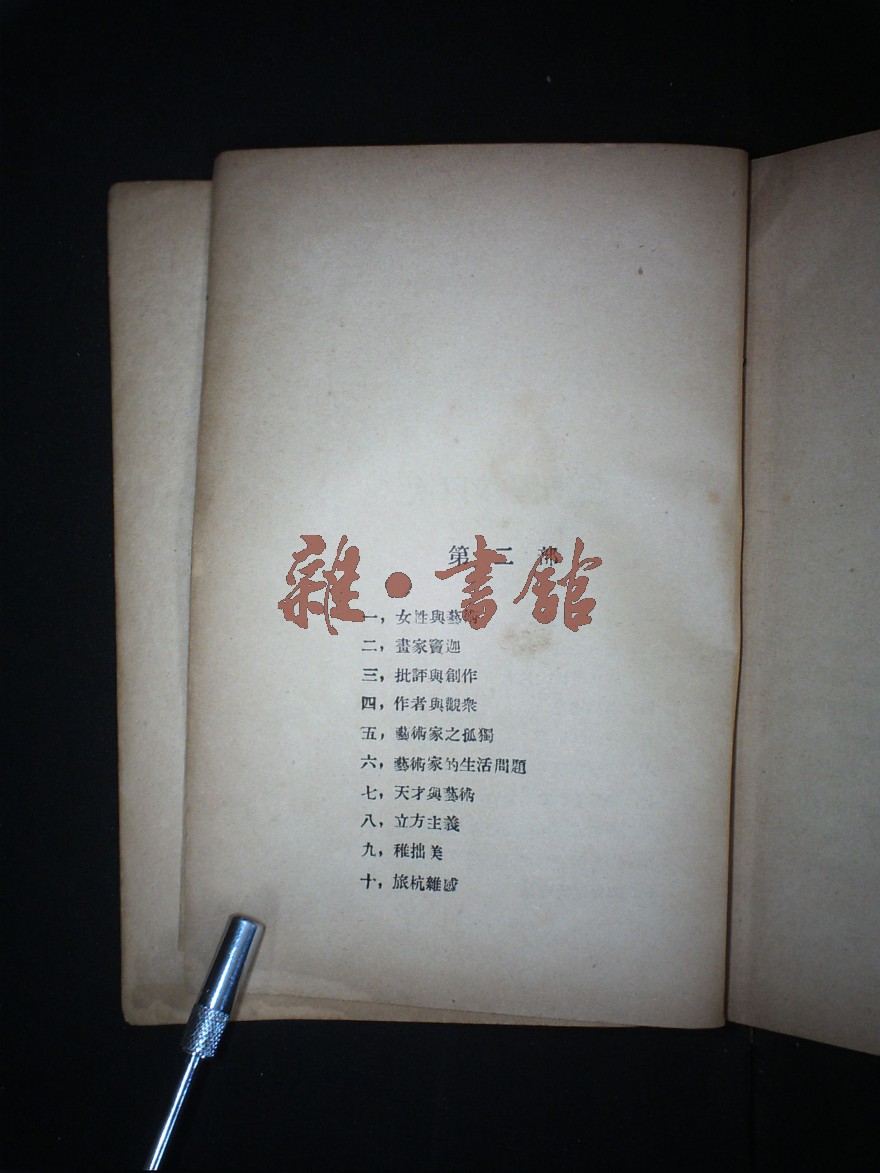 第二部
雜·書館
一，女性與藝術
二，畫家竇迦
三，批評與創作
四，作者與觀衆
五，藝術家之孤獨
六，藝術家的生活問題
七，天才與藝術
八，立方主義
九，稚拙美
十，旅杭雜感